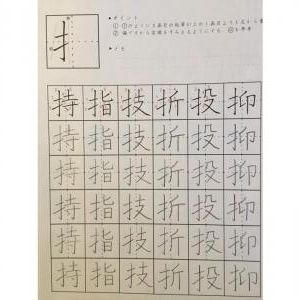 扌
ポイント
メモ
持指技折投抑
持指技折投抑
持指技折投抑
持指技折投抑
持指技折投抑
持指技折投抑